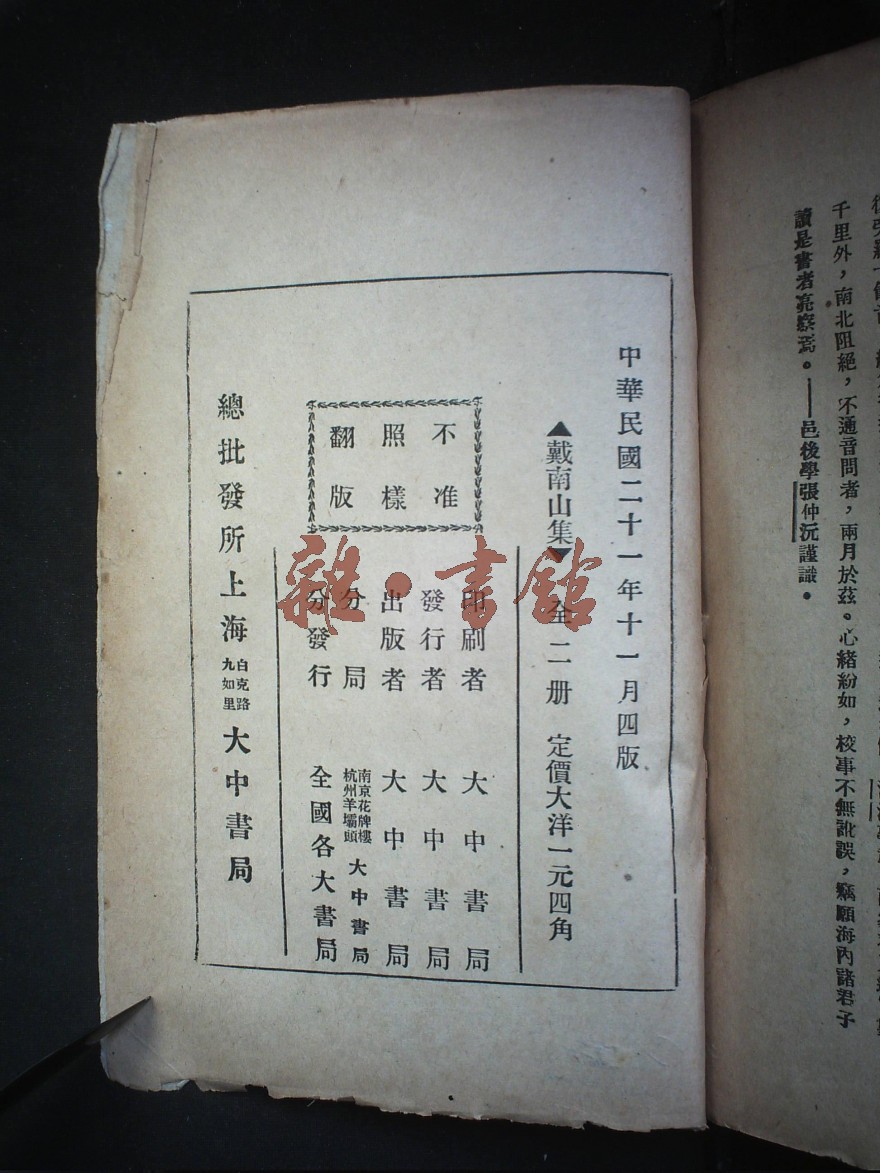 千里外，南北阻絕，不通音問者，兩月於茲。心緒紛如，校事不無訛誤，竊願海內諸君子
讀是書者亮察焉。——邑後學張仲沅謹識。
中華民國二十一年十一月四版
▲戴南山集▼ 全二册 定價大洋一元四角
不准
照樣
翻版
印刷者 大中書局
發行者 大中書局
出版者 大中書局
分局 南京花牌樓 杭州羊壩頭 大中書局
分發行 全國各大書局
總批發所上海 白克路 九如里 大中書局
雜·書館